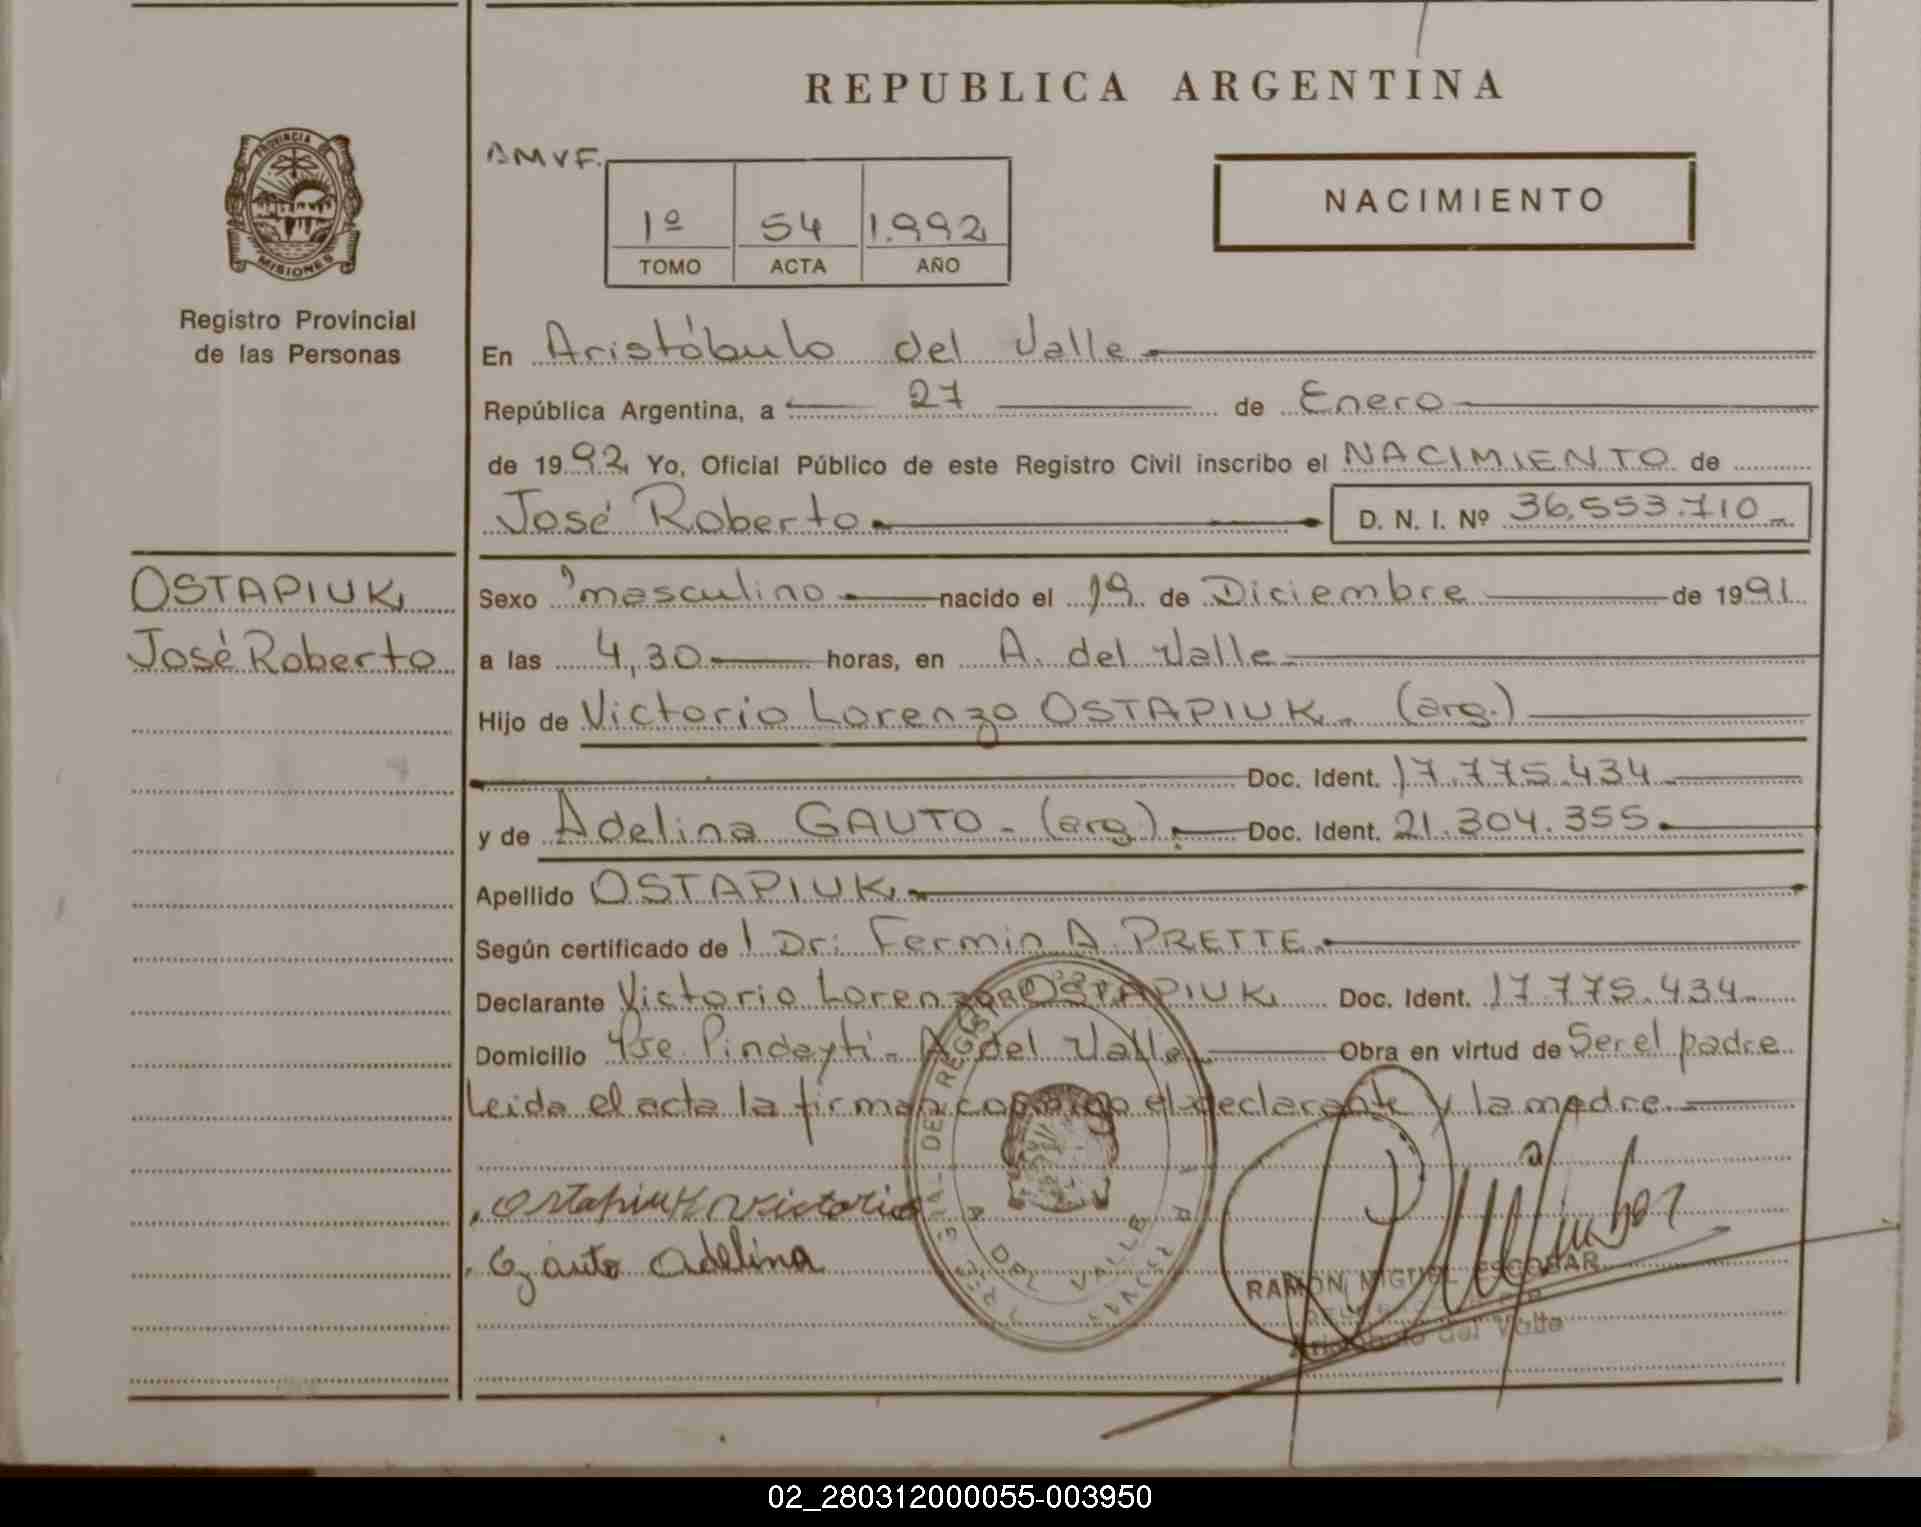 REPUBLICA ARGENTINA
PROVINCIA
MISIONES
Registro Provincial
de las Personas
AMVF.
1º 54 1.992
TOMO ACTA AÑO
NACIMIENTO
En Aristóbulo del Valle
República Argentina, a 27 de Enero
de 1992 Yo, Oficial Público de este Registro Civil inscribo el NACIMIENTO de
José Roberto D. N. I. Nº 36.553.710
OSTAPIUK
José Roberto
Sexo masculino nacido el 19 de Diciembre de 1991
a las 4,30 horas, en A. del Valle
Hijo de Victorio Lorenzo OSTAPIUK (arg.)
Doc. Ident. 17.775.434
y de Adelina GAUTO - (arg.) Doc. Ident. 21.304.355
Apellido OSTAPIUK
Según certificado de Dr: Fermin A. PRETTE
Declarante Victorio Lorenzo OSTAPIUK Doc. Ident. 17.775.434
Domicilio Pindayti - A. del Valle Obra en virtud de Ser el padre
Leida el acta la firman conmigo el declarante y la madre.
Ostapiuk Victorio
Gauto Adelina
DEL VALLE
RAMON MIGUEL ESCOBAR
Aristóbulo del Valle
02_280312000055-003950